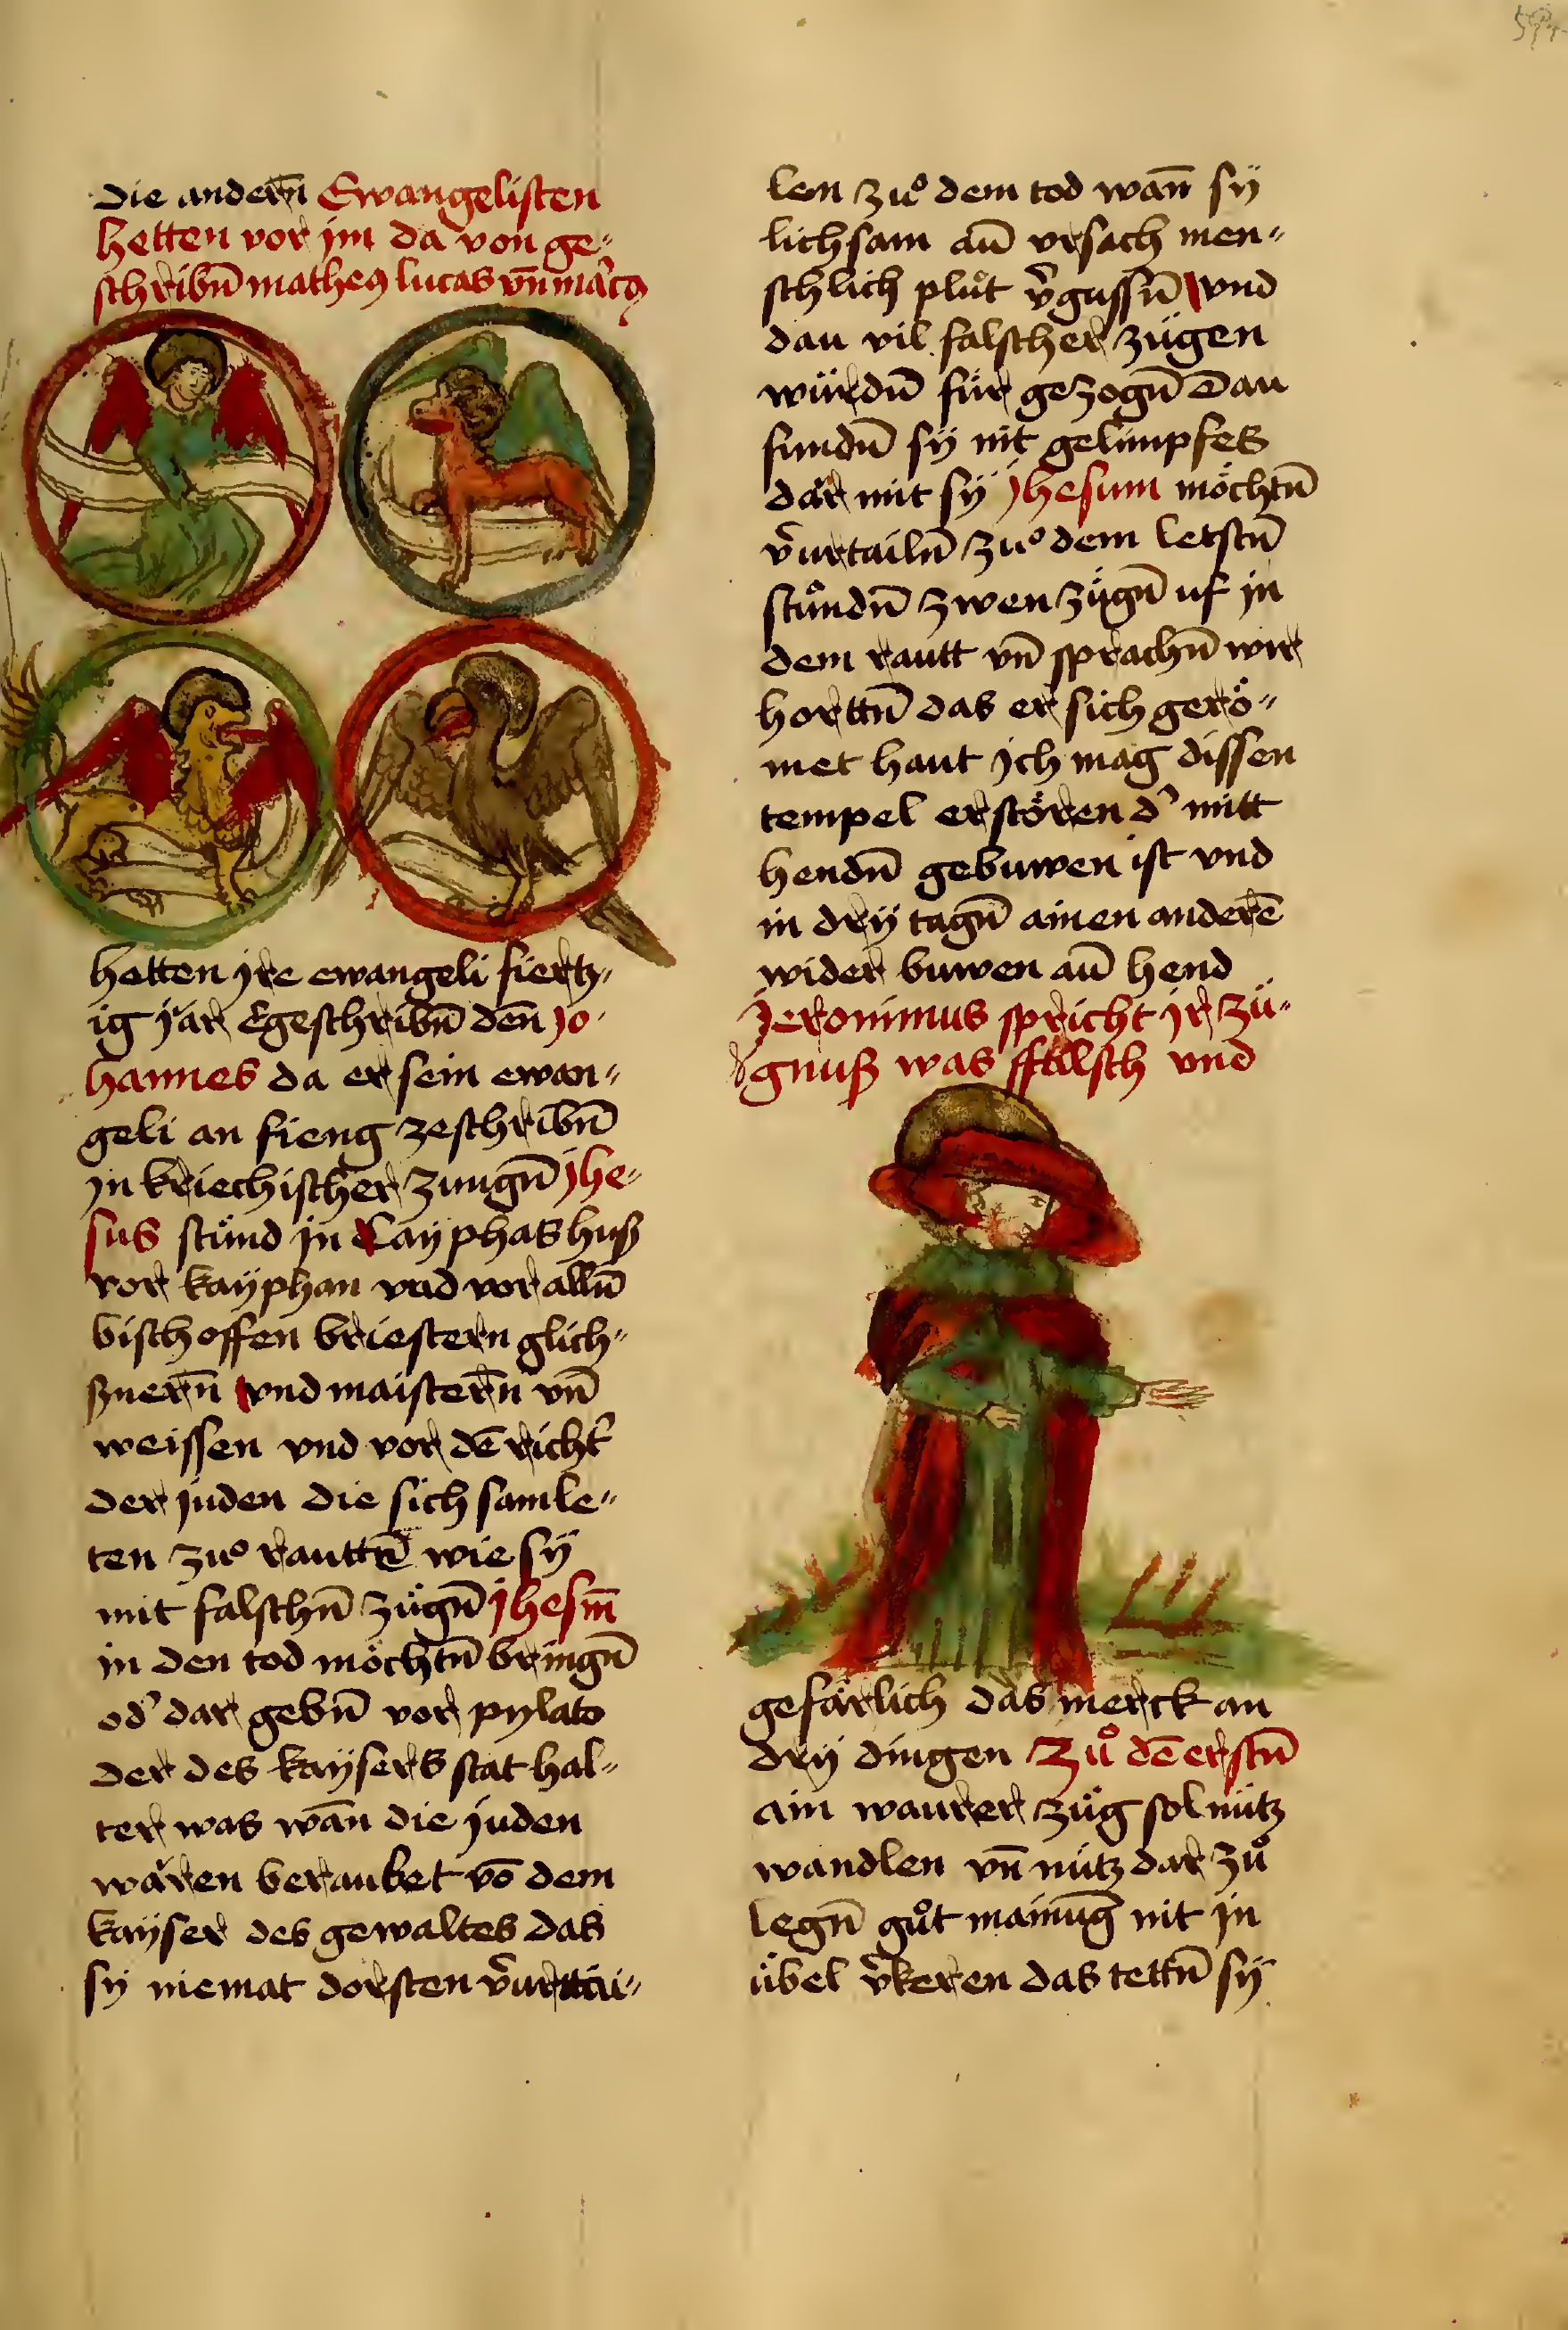 Die andern̄ Ewangelisten
hetten vor jm da von ge„
schribn̄ matheꝰ lucas vn̄ marcꝰ
hetten jre ewangeli fiertz„
ig jar Egeschribn̄ den̄ Jo„
hannes da er sein ewan„
geli an fieng zeschribn̄
jn kriechischer zungn̄ jhe„
sus stůnd jn Cayphas huß
vor kaÿphan vnd vor alln̄
bischoffen briestern glich„
ßnern̄ vnd maistern̄ vn̄
weissen vnd vor dē richt᷑
der juden die sich samle„
ten zuͦ rauttn̄ wie sÿ
mit falschn̄ zügn̄ jhesm̄
in den tod möchtn̄ bringn̄
od᷑ dar gebn̄ vor pylato
der des kaÿsers stat hal„
ter was wān die juden
wären beraubet vō dem
kaÿser des gewaltes das
sÿ niemat dorsten v᷑urttai„
len zuͦ dem tod wan̄ sÿ
lichsam an̄ vrsach men„
schlich plůt v᷑gussn̄ vnd
dau vil falscher zügen
würdn̄ für gezogn̄ Dau
fundn̄ sÿ nit gelimpfes
dar mit sÿ jhesum möchtn̄
v᷑urtailn̄ zuͦ dem letstn̄
stůndn̄ zwen zügn̄ uf jn
dem rautt vn̄ sprachn̄ wir
horttn̄ das er sich gerö„
met haut jch mag dissen
tempel erstören d᷑ mitt
hendn̄ gebuwen ist vnd
in drÿ tagn̄ ainen anderē
wider buwen an̄ hend
Jeronimus spricht jr zü„
gnuß was ffalsch vnd
gefärlich das merck an
drÿ dingen Zů dē erstn̄
ain waurer züg sol nütz
wandlen vn̄ nütz dar zů
legn̄ gůt mainūg nit jn
übel v᷑keren das tettn̄ sÿ